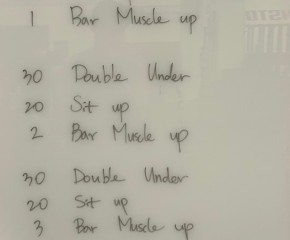 1 Bar Muscle up
30 Double Under
20 Sit up
2 Bar Muscle up
30 Double Under
20 Sit up
3 Bar Muscle up